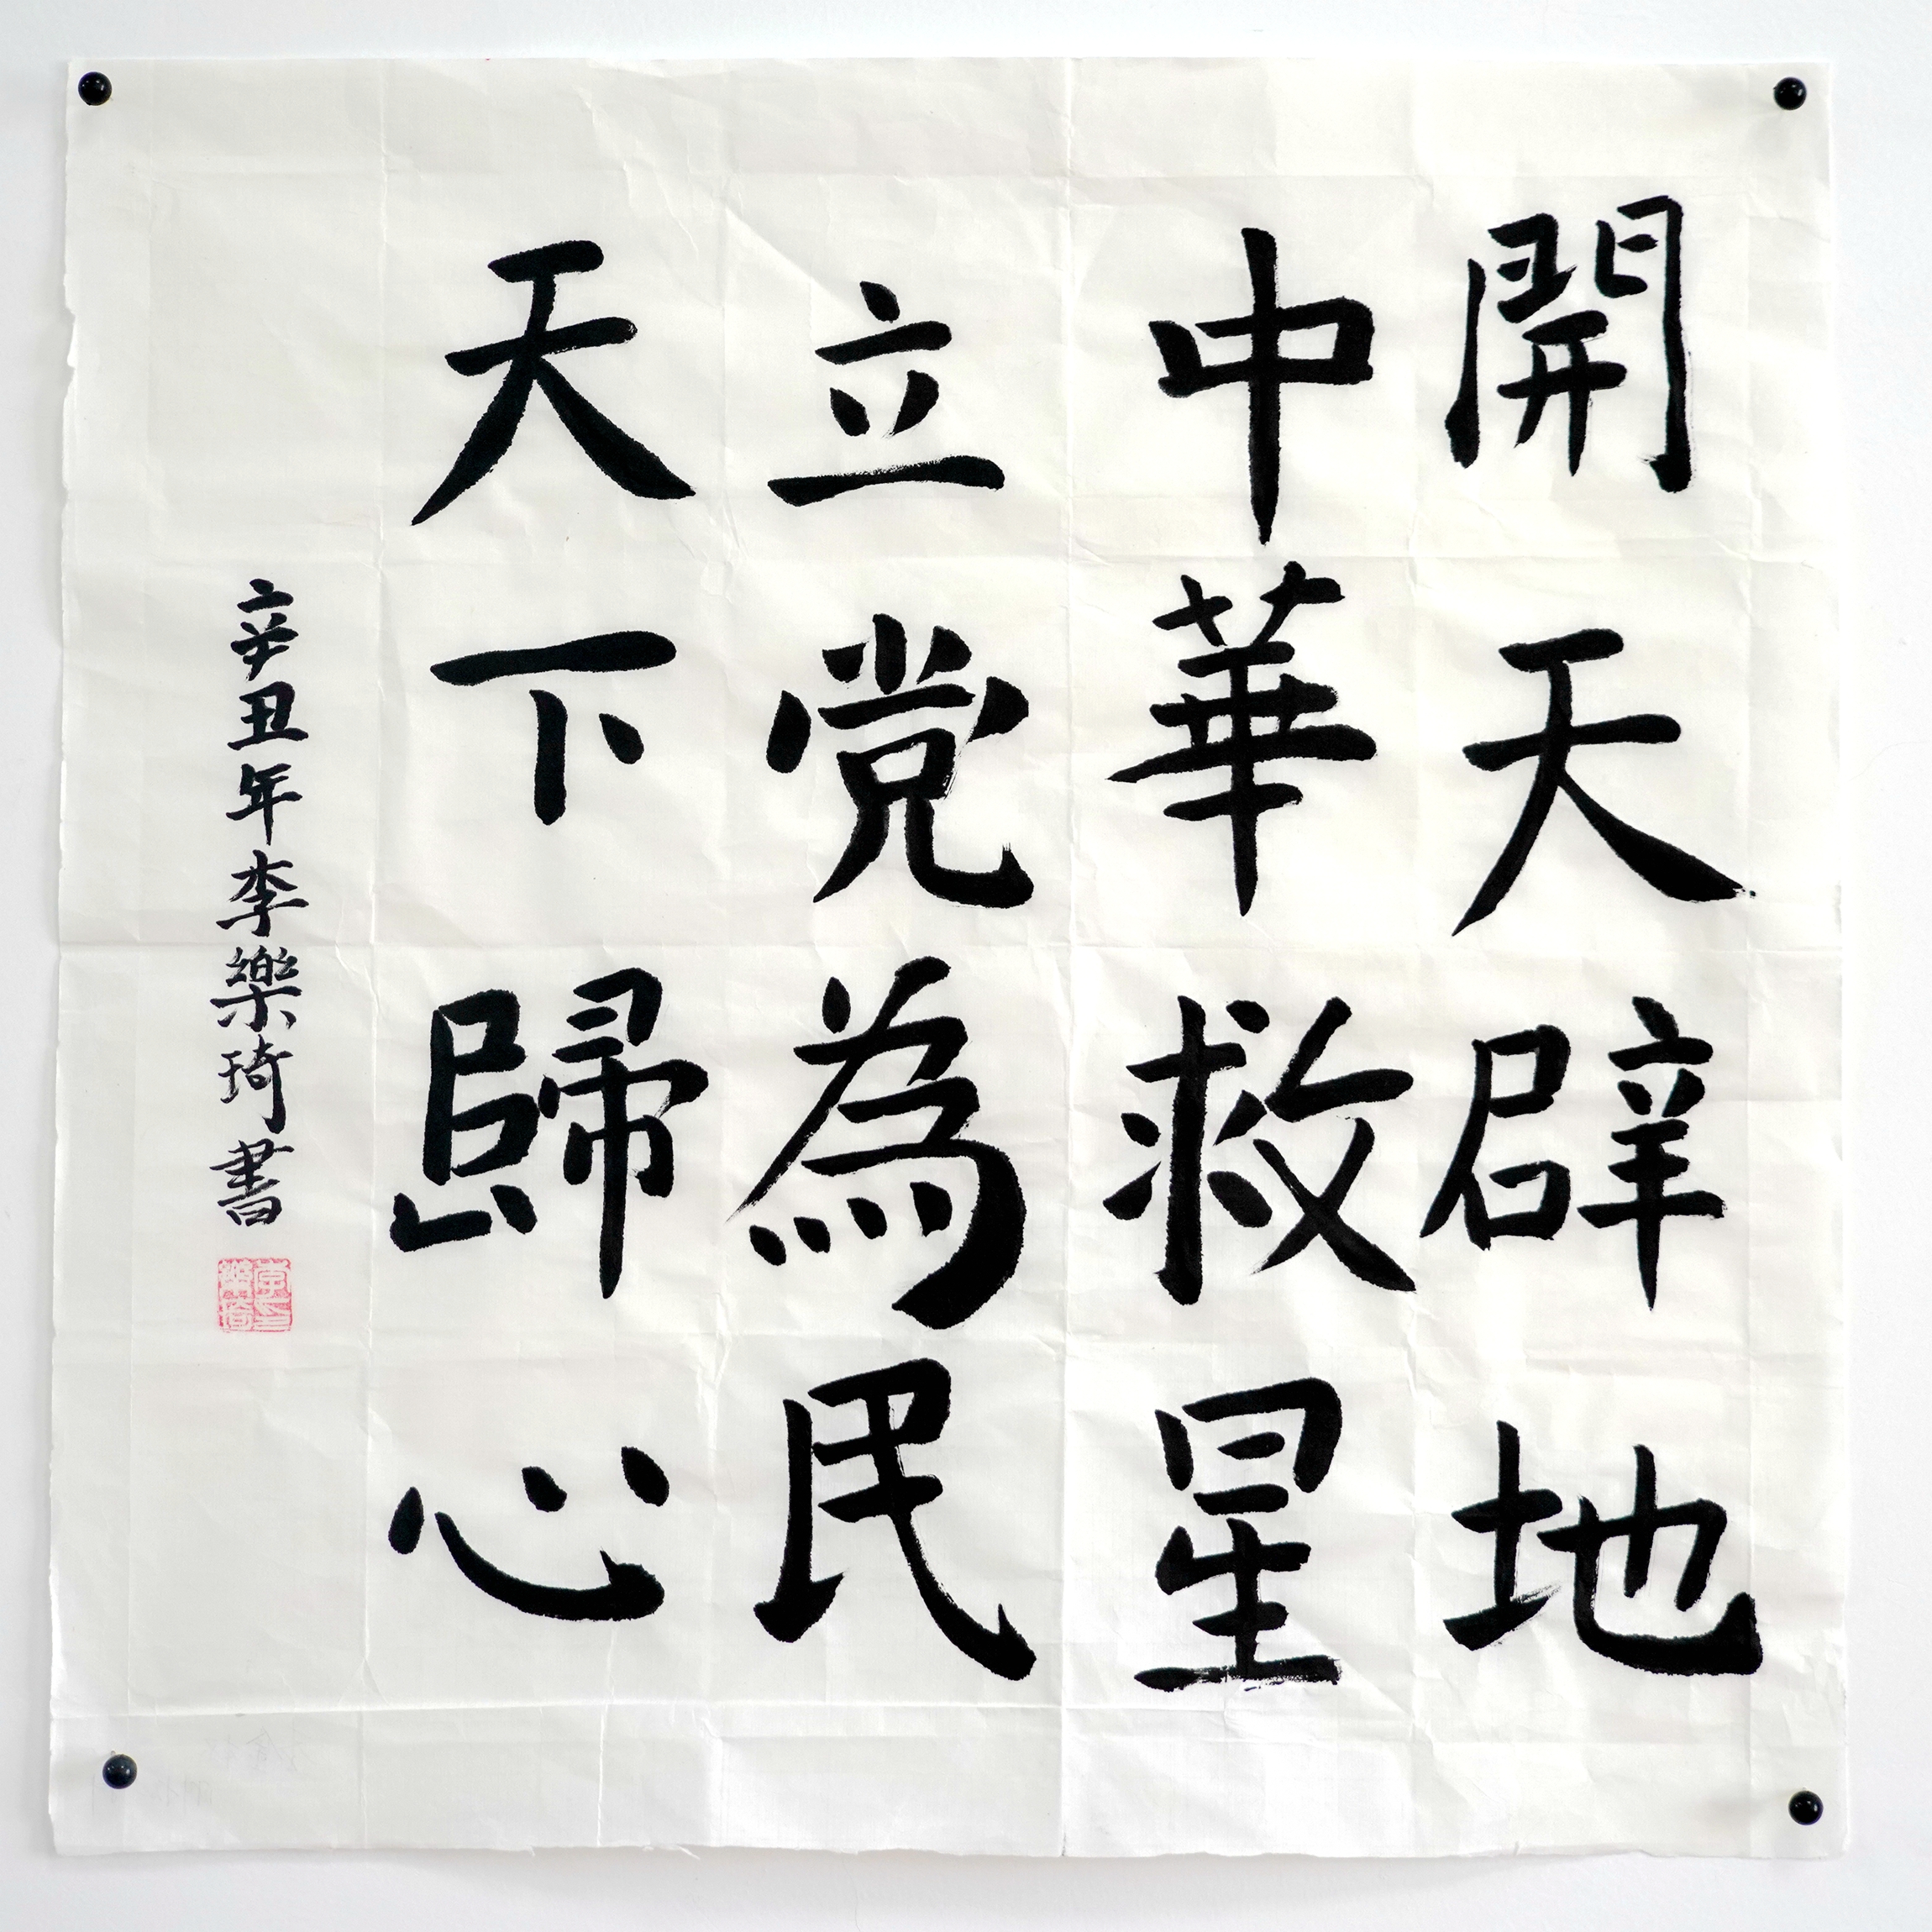 開天辟地
中華救星
立党為民
天下歸心
辛丑年李樂琦書